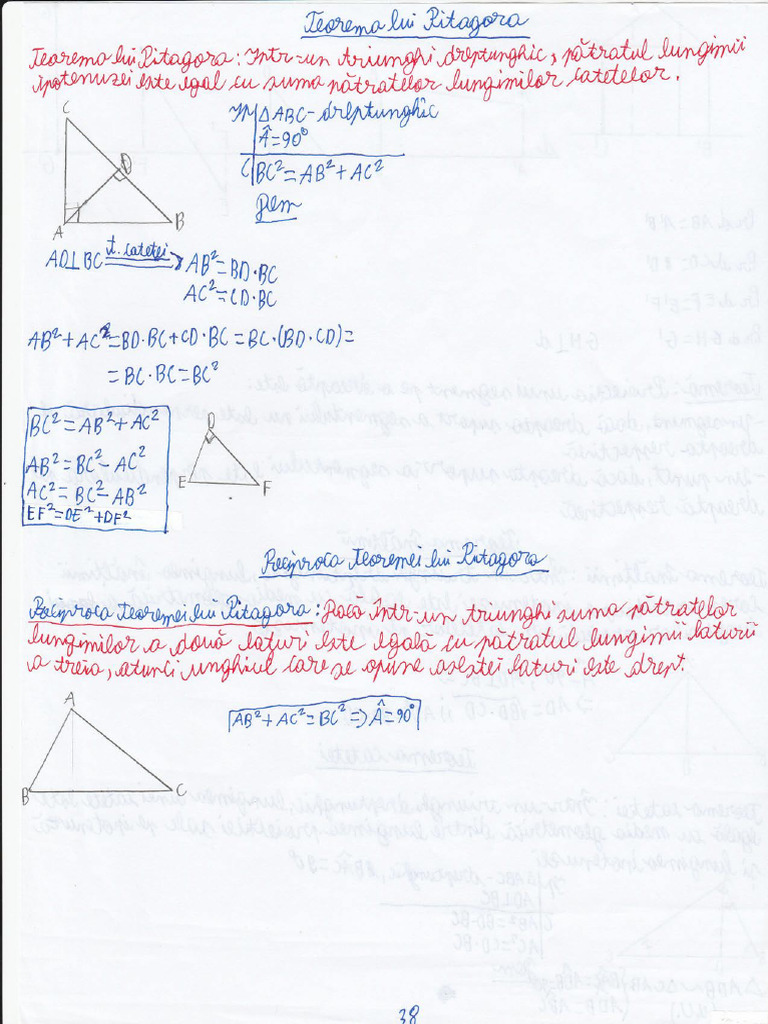 Teorema lui Pitagora
Teorema lui Pitagora: Într-un triunghi dreptunghic, pătratul lungimii
ipotenuzei este egal cu suma pătratelor lungimilor catetelor.
C
D
A
B
Ip ΔABC-dreptunghic
Â=90°
C BC²=AB²+AC²
Dem
AD⊥BC t. catetei AB²=BD·BC
AC²=CD·BC
AB²+AC²=BD·BC+CD·BC=BC·(BD·CD)=
=BC·BC=BC²
BC²=AB²+AC²
AB²=BC²-AC²
AC²=BC²-AB²
EF²=DE²+DF²
D
E
F
Reciproca Teoremei lui Pitagora
Reciproca Teoremei lui Pitagora: Dacă într-un triunghi suma pătratelor
lungimilor a două laturi este egală cu pătratul lungimii laturii
a treia, atunci unghiul care se opune acestei laturi este drept.
A
B
C
AB²+AC²=BC²=>Â=90°
38